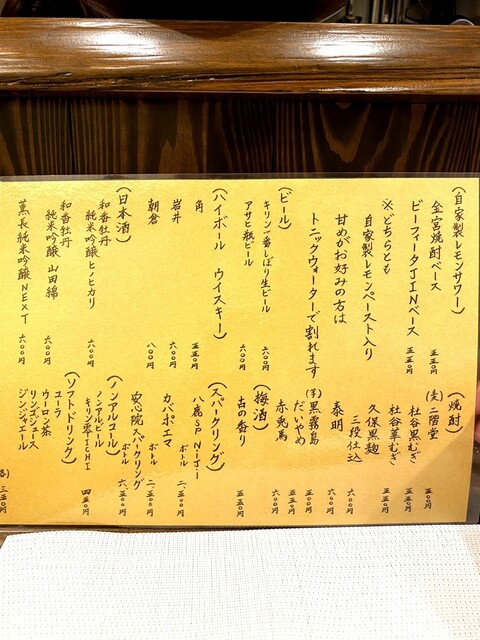 (自家製レモンサワー)
金宮焼酎ベース 五五〇円
ビーフィータJINベース 五五〇円
※どちらとも
自家製レモンペースト入り
甘めがお好みの方は
トニックウォーターで割れます
(ビール)
キリン一番しぼり生ビール 六〇〇円
アサヒ瓶ビール 六〇〇円
(ハイボール ウイスキー)
角 五五〇円
岩井 六〇〇円
朝倉 八〇〇円
(日本酒)
和香牡丹
純米吟醸ヒノヒカリ 六〇〇円
和香牡丹
純米吟醸 山田錦 六〇〇円
薫長純米吟醸NEXT 六〇〇円
(焼酎)
(麦)二階堂 五五〇円
杜谷黒むぎ 五五〇円
杜谷華むぎ 五五〇円
久保黒麹 五五〇円
三段仕込 六〇〇円
泰明 六〇〇円
(芋)黒霧島 五五〇円
だいやめ 五五〇円
赤兎馬 六〇〇円
(梅酒)
古の香り 五五〇円
(スパークリング)
八鹿SPNIJI
ボトル 二、五〇〇円
カバポエマ
ボトル 二、五〇〇円
安心院スパークリング
ボトル 六、五〇〇円
(ノンアルコール)
ノンアルビール
キリン零ICHI 四五〇円
(ソフトドリンク)
コーラ
ウーロン茶
リンゴジュース
ジンジャエール
三五〇円